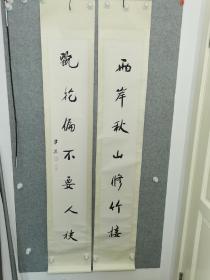 两岸秋山修竹接
观花偏不要人扶